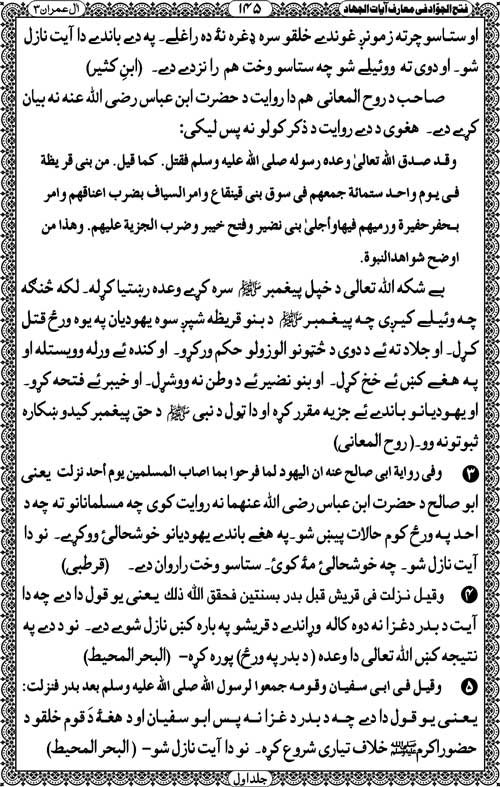 فتح الجوّاد فی معارف آیات الجهاد ۱۴۵ اٰل عمران ۳
او ستاسو چرته زمونږ غوندے خلقو سره ډغره نۀ ده راغلے۔ په دے باندے دا آیت نازل
شو۔ او دوی ته ووئیلے شو چه ستاسو وخت هم را نزدے دے۔ (ابنِ کثیر)
صاحب د روح المعانی هم دا روایت د حضرت ابن عباس رضی الله عنه نه بیان
کړے دے۔ هغوی د دے روایت د ذکر کولو نه پس لیکی:
وقد صدق الله تعالیٰ وعده رسوله صلی الله علیه وسلم فقتل. کما قیل. من بنی قریظة
فی یوم واحد ستمائة جمعهم فی سوق بنی قینقاع وامر السیاف بضرب اعناقهم وامر
بحفر حفیرة ورمیهم فیها وأجلیٰ بنی نضیر وفتح خیبر وضرب الجزیة علیهم. وهذا من
اوضح شواهد النبوة.
بے شکه الله تعالی د خپل پیغمبر ﷺ سره کړے وعده رښتیا کړله۔ لکه څنګه
چه وئیلے کیږی چه پیغمبر ﷺ د بنو قریظه شپږ سوه یهودیان په یوه ورځ قتل
کړل۔ او جلاد ته ئے د دوی د څټونو الوزولو حکم ورکړو۔ او کنده ئے ورله وویستله او
په هغے کښ ئے خخ کړل۔ او بنو نضیر ئے د وطن نه ووشړل۔ او خیبر ئے فتحه کړو۔
او یهودیانو باندے ئے جزیه مقرر کړه او دا ټول د نبی ﷺ د حق پیغمبر کیدو ښکاره
ثبوتونه وو۔ (روح المعانی)
۳ وفی روایة ابی صالح عنه ان الیهود لما فرحوا بما اصاب المسلمین یوم أحد نزلت یعنی
ابو صالح د حضرت ابن عباس رضی الله عنهما نه روایت کوی چه مسلمانانو ته چه د
احد په ورځ کوم حالات پیښ شو۔ په هغے باندے یهودیانو خوشحالی ووکړے۔ نو دا
آیت نازل شو۔ چه خوشحالئ مۀ کوئ۔ ستاسو وخت راروان دے۔ (قرطبی)
۴ وقیل نزلت فی قریش قبل بدر بسنتین فحقق الله ذلك یعنی یو قول دا دے چه دا
آیت د بدر د غزا نه دوه کاله وړاندے د قریشو په باره کښ نازل شوے دے۔ نو د دے په
نتیجه کښ الله تعالی دا وعده (د بدر په ورځ) پوره کړه– (البحر المحیط)
۵ وقیل فی ابی سفیان وقومه جمعوا لرسول الله صلی الله علیه وسلم بعد بدر فنزلت:
یعنی یو قول دا دے چه د بدر د غزا نه پس ابو سفیان او د هغۀ دَ قوم خلقو د
حضور اکرم ﷺ خلاف تیاری شروع کړه۔ نو دا آیت نازل شو– (البحر المحیط)
جلد اول